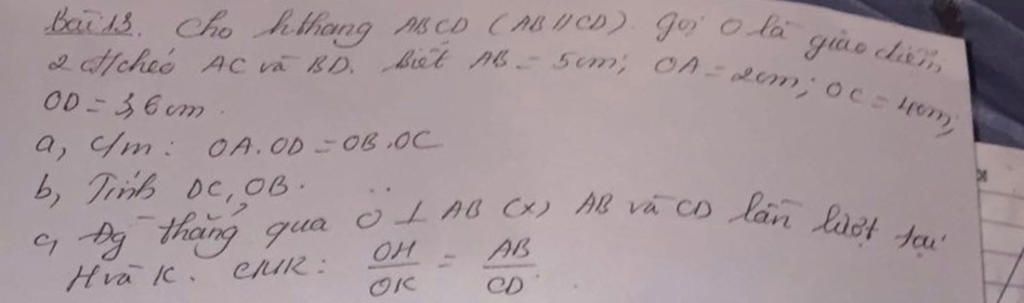 Bài 13. Cho hthang ABCD (AB//CD). gọi O là giao điểm
2 đ/chéo AC và BD. Biết AB = 5cm; OA = 2cm; OC = 4cm;
OD = 3,6 cm.
a, c/m: OA.OD = OB.OC
b, Tính DC, OB.
c, Đg thẳng qua O ⊥ AB (x) AB và CD lần lượt tại
H và K. CMR: OH/OK = AB/CD.